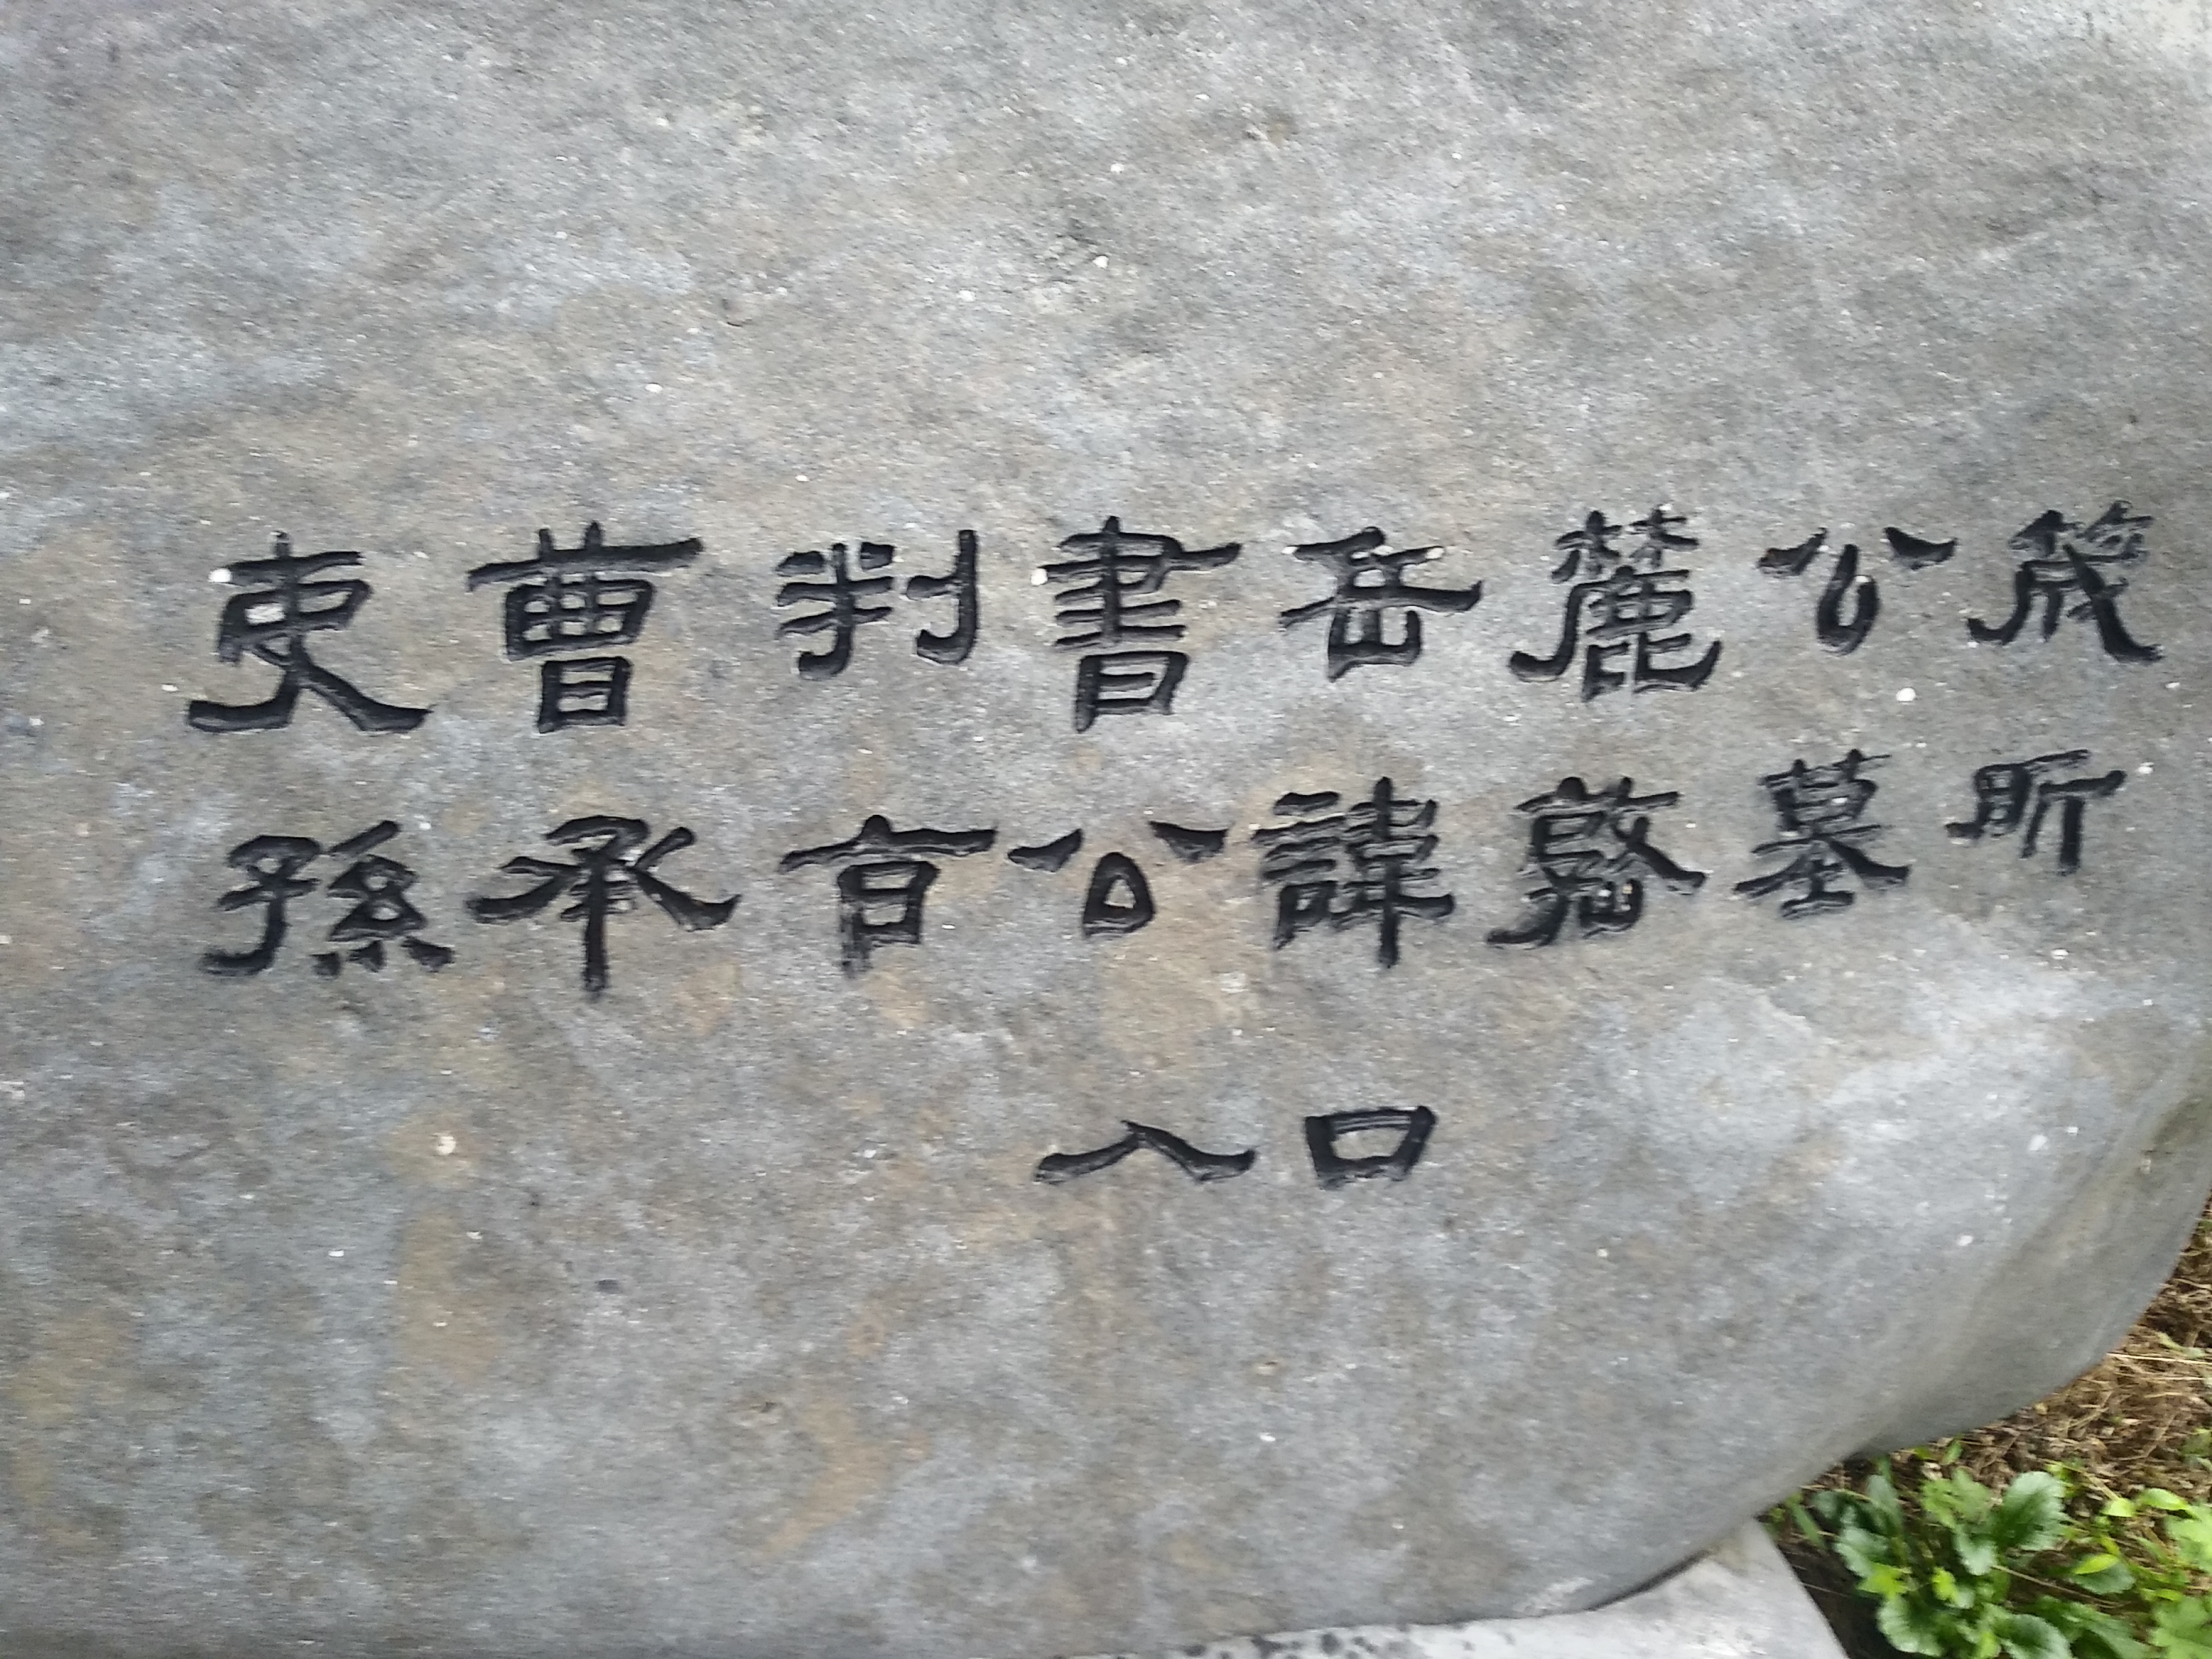 吏曹判書岳麓公筬
孫承旨公諱墓所
入口